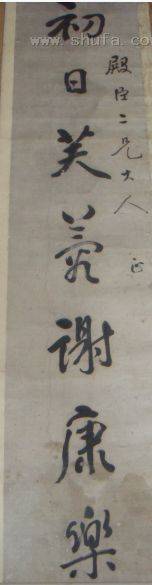 殿臣二兄大人
正
初日芙蓉谢康樂
www.shufa.com